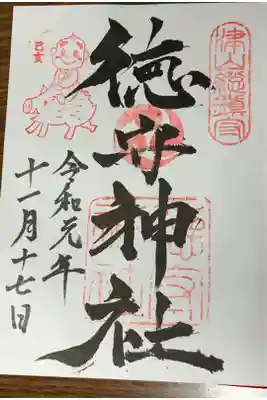 津山総鎮守
徳守神社
己亥
令和元年
十一月十七日